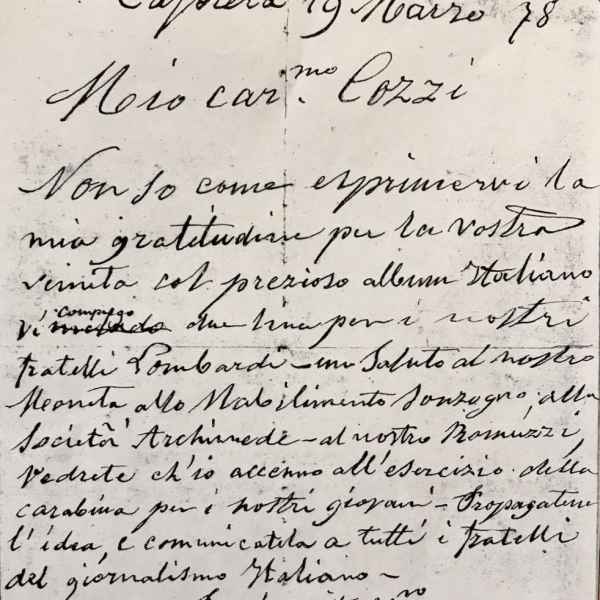 Caprera 19 Marzo 78
Mio car.mo Cozzi
Non so come esprimervi la
mia gratitudine per la vostra
venuta col prezioso album Italiano
Vi compiego due linee per i nostri
fratelli Lombardi - un Saluto al nostro
Moneta allo Stabilimento Sonzogno, alla
Società Archimede - al nostro Romuzzi,
Vedrete ch'io accenno all'esercizio della
carabina per i nostri giovani - Propagatene
l'idea, e comunicatela a tutti i fratelli
del giornalismo Italiano -